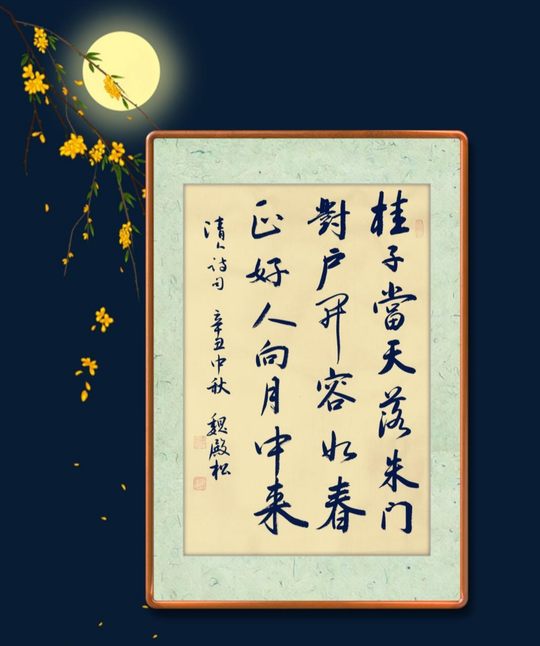 桂子當天落朱门
對户开容如春
正好人向月中来
清人诗句 辛丑中秋 魏殿松